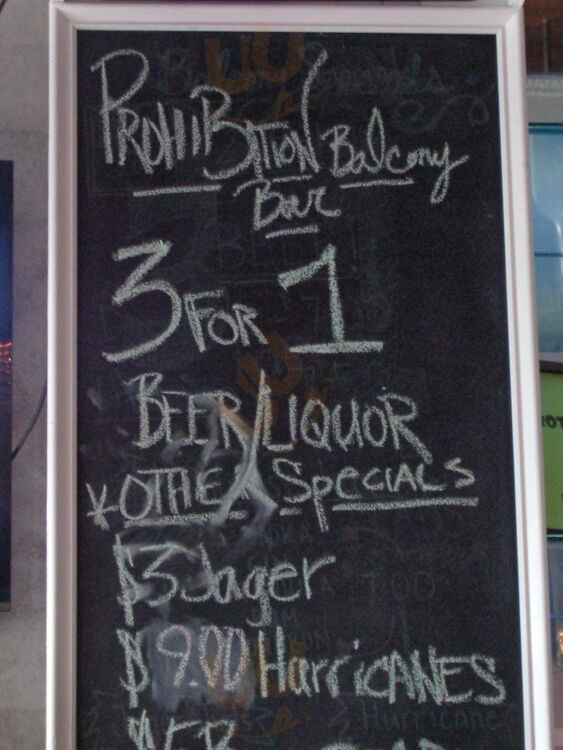 PROHIBITION Balcony
Bar
3 FOR 1
BEER/LIQUOR
*OTHER Specials
$3 Jager
$9.00 HurricANES